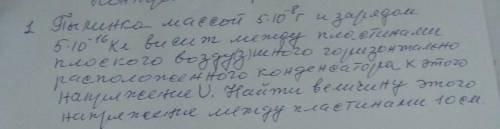 1 Пылинка массой 5·10⁻⁸г и зарядом
5·10⁻¹⁶Кл висит между пластинами
плоского воздушного горизонтально
расположенного конденсатора к этого
напряжение U. Найти величину этого
напряжение между пластинами 10см.